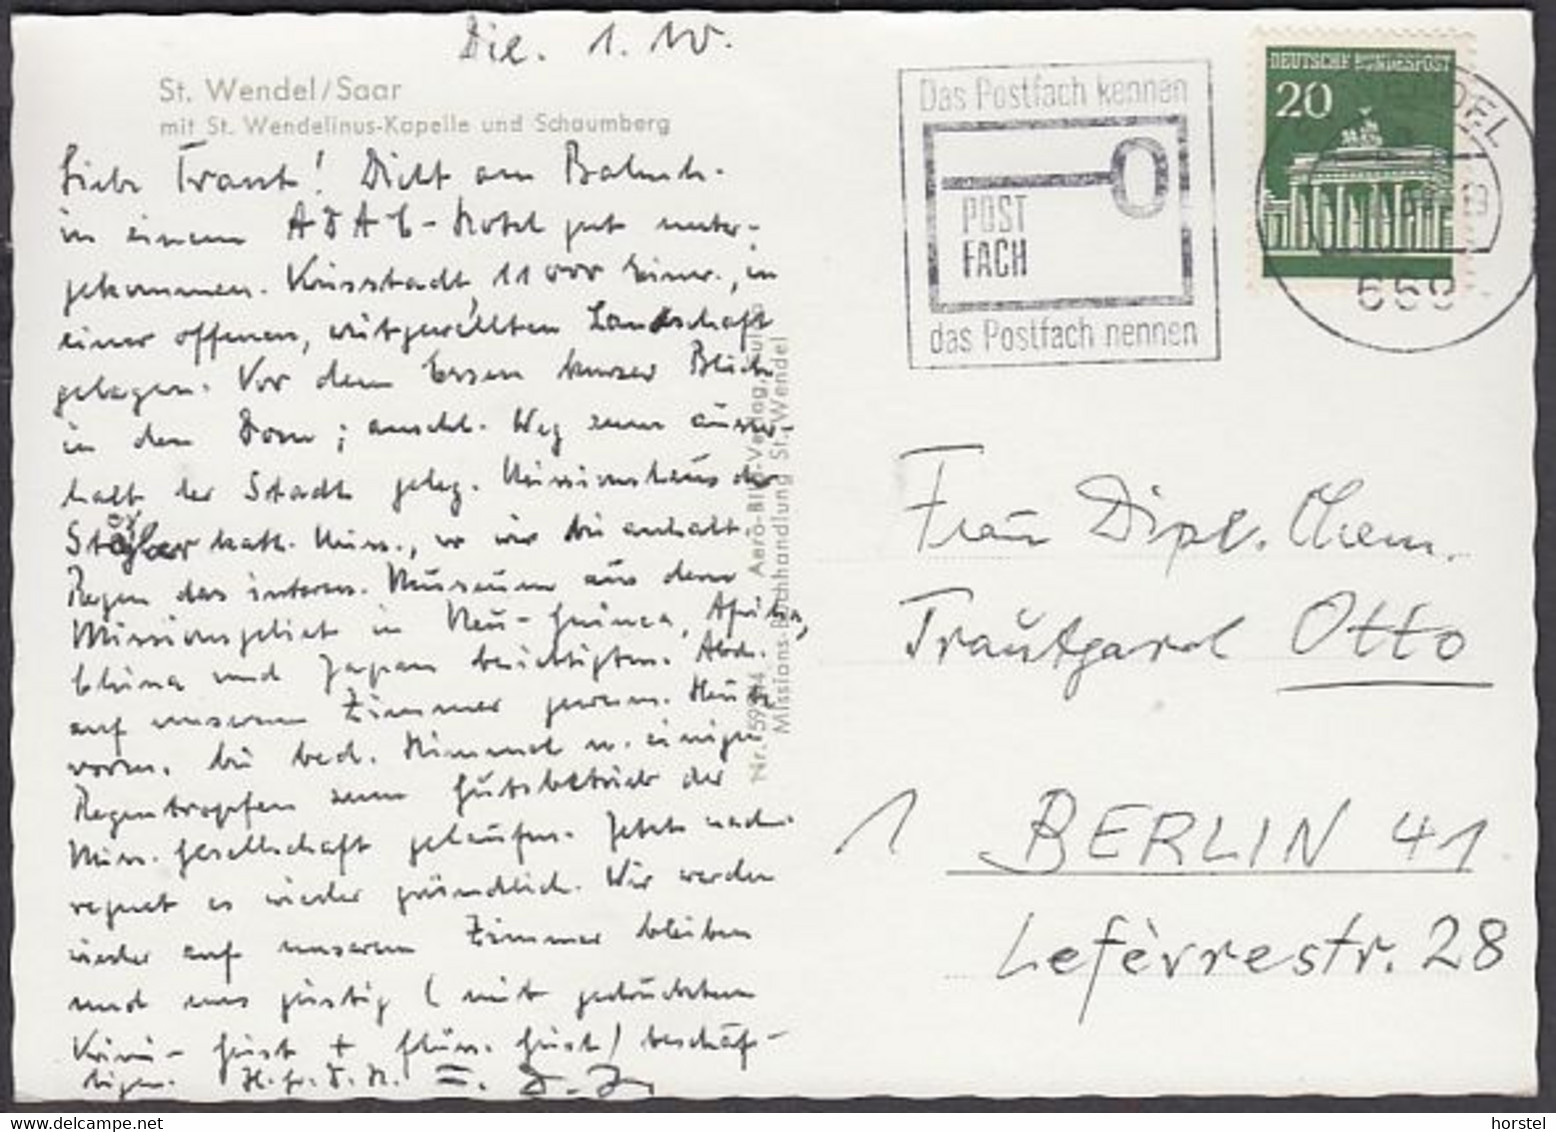 Die. 1. 10.
St. Wendel/Saar
mit St. Wendelinus-Kapelle und Schaumberg
Liebe Traut! Dicht am Bahnh.
in einem ADAC-Hotel gut unter-
gekommen. Kreisstadt 11000 Einw., in
einer offenen, weitgewellten Landschaft
gelegen. Vor dem Essen kurzer Blick
in den Dom; anschl. Weg zum ausser-
halb der Stadt geleg. Missionshaus der
kath. Miss., wo wir bei anhalt.
Regen das interess. Museum aus dem
Missionsgebiet in Neu-Guinea, Afrika,
China und Japan besichtigten. Abds.
auf unserem Zimmer gewesen. Heute
vorm. bei bed. Himmel u. einigen
Regentropfen zum Gutsbetrieb der
Miss. Gesellschaft gelaufen. Jetzt nachm.
regnet es wieder gründlich. Wir werden
wieder auf unserem Zimmer bleiben
und uns geistig (mit gedrucktem
Krimi-Geist + flüss. Geist) beschäf-
tigen. H. Gr.
Nr. Aero-Bild-Verlag, Fulda
Missions-Buchhandlung St. Wendel
Das Postfach kennen
POST
FACH
das Postfach nennen
DEUTSCHE BUNDESPOST
20
Frau Dipl. Chem.
Trautgard Otto
1 BERLIN 41
Lefèvrestr. 28
horstel
delcampe.net